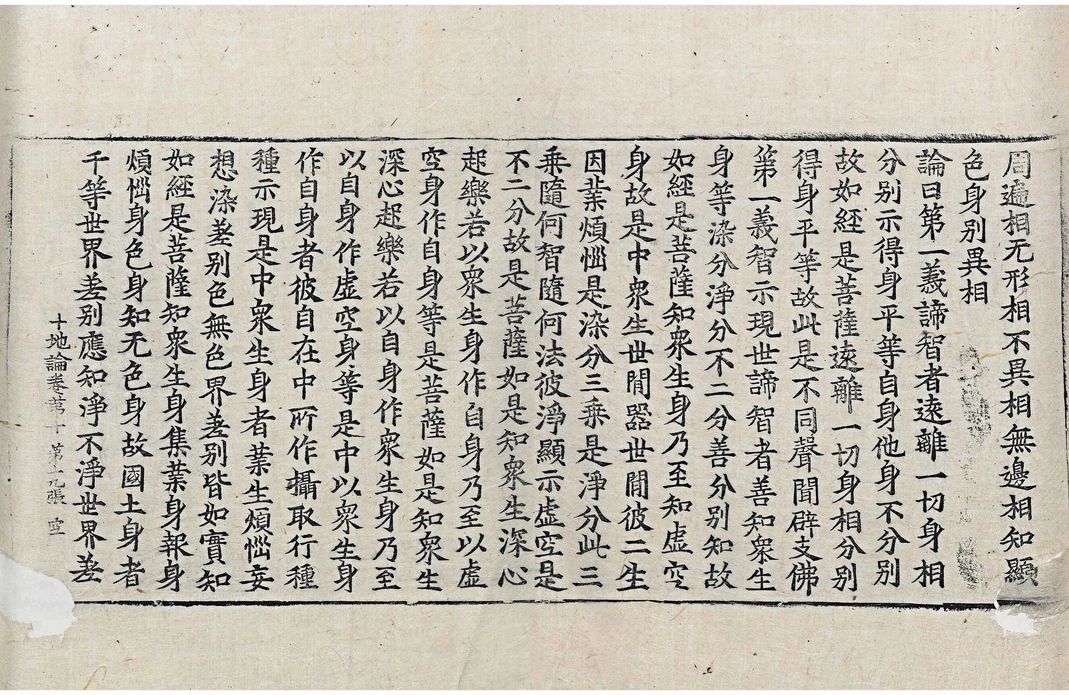 周遍相无形相不異相無邊相知顯
色身別異相
論曰第一義諦智者遠離一切身相
分別示得身平等自身他身不分別
故如經是菩薩遠離一切身相分別
得身平等故此是不同聲聞辟支佛
第一義智示現世諦智者善知衆生
身等染分淨分不二分善分別知故
如經是菩薩知衆生身乃至知虛空
身故是中衆生世間器世間彼二生
因業煩惱是染分三乘是淨分此三
乘隨何智隨何法彼淨顯示虛空是
不二分故是菩薩如是知衆生深心
起樂若以衆生身作自身乃至以虛
空身作自身等是菩薩如是知衆生
深心起樂若以自身作衆生身乃至
以自身作虛空身等是中以衆生身
作自身者彼自在中所作攝取行種
種示現是中衆生身者業生煩惱妄
想染差别色無色界差别皆如實知
如經是菩薩知衆生身集業身報身
煩惱身色身知无色身故國土身者
十地論卷第十 第十九張 空
千等世界差别應知淨不淨世界差